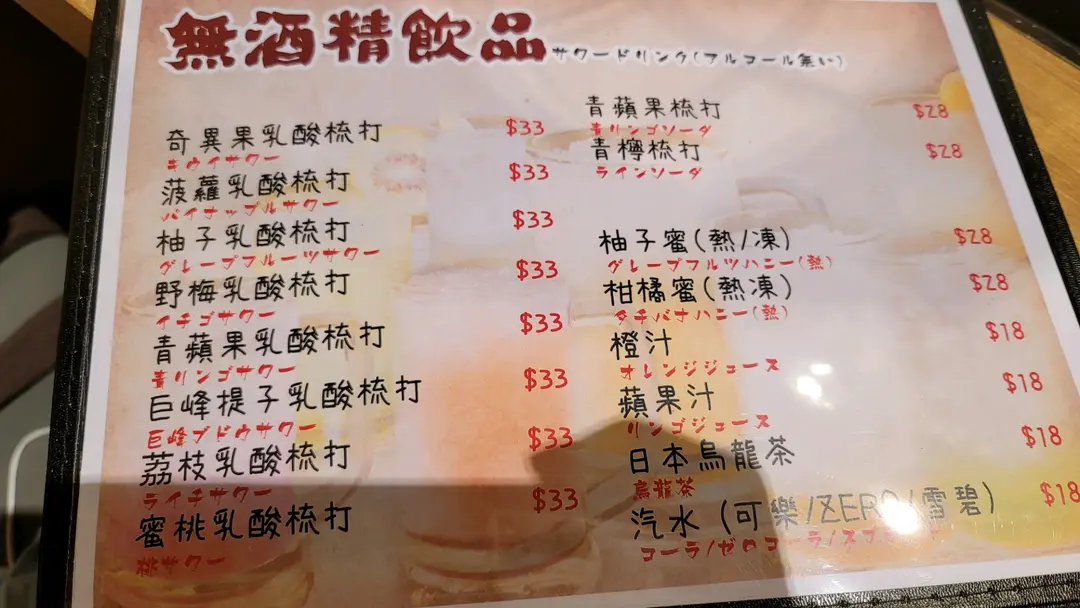 無酒精飲品 サワードリンク(アルコール無い)
奇異果乳酸梳打 $33
キウイサワー
菠蘿乳酸梳打 $33
パイナップルサワー
柚子乳酸梳打 $33
グレープフルーツサワー
野梅乳酸梳打 $33
イチゴサワー
青蘋果乳酸梳打 $33
青リンゴサワー
巨峰提子乳酸梳打 $33
巨峰ブドウサワー
荔枝乳酸梳打 $33
ライチサワー
蜜桃乳酸梳打 $33
桃サワー
青蘋果梳打 $28
青リンゴソーダ
青檸梳打 $28
ラインソーダ
柚子蜜(熱/凍) $28
グレープフルツハニー(熱)
柑橘蜜(熱凍) $28
タチバナハニー(熱)
橙汁 $18
オレンジジュース
蘋果汁 $18
リンゴジュース
日本烏龍茶 $18
烏龍茶
汽水(可樂/ZERO/雪碧) $18
コーラ/ゼロコーラ/